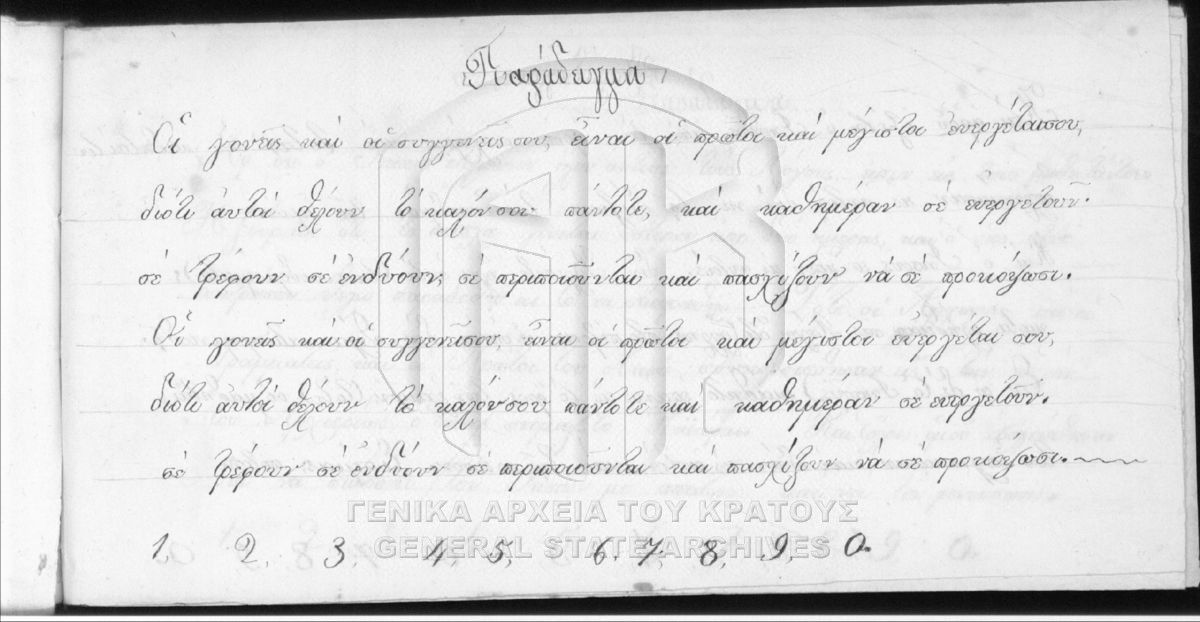 Παράδειγμα
Οἱ γονεῖς καὶ οἱ συγγενεῖς σου, εἶναι οἱ πρῶτοι καὶ μέγιστοι ἐυεργέταισου,
διότι ἀυτοὶ θέλουν τὸ καλόν σου πάντοτε, καὶ καθημέραν σὲ ἐυεργετοῦν.
σὲ τρέφουν σὲ ἐνδύουν, σὲ περιποιοῦνται καὶ πασχίζουν νὰ σὲ προκόψωσι.
Οἱ γονεῖς καὶ οἱ συγγενεῖσσου, εἶναι οἱ πρῶτοι καὶ μέγιστοι ἐυεργέται σου,
διότι ἀυτοὶ θέλουν τὸ καλόν σου πάντοτε καὶ καθημέραν σὲ ἐυεργετοῦν.
σὲ τρέφουν σὲ ἐνδύουν σὲ περιποιοῦνται καὶ πασχίζουν νὰ σὲ προκόψωσι.
ΓΕΝΙΚΑ ΑΡΧΕΙΑ ΤΟΥ ΚΡΑΤΟΥΣ
GENERAL STATE ARCHIVES
1. 2. 3. 4. 5. 6. 7. 8. 9. 0.